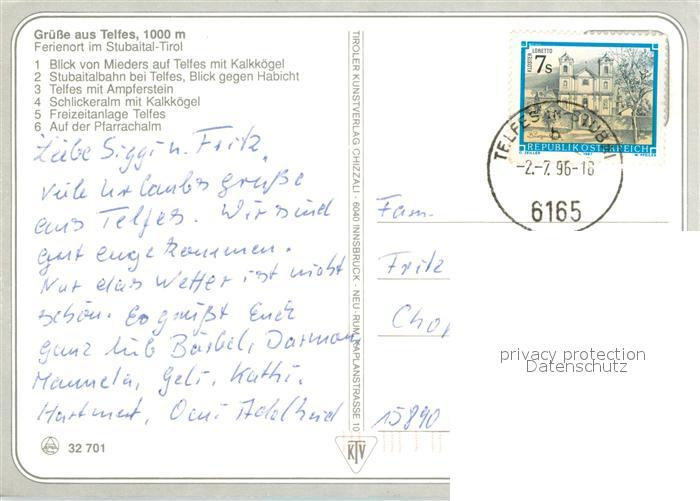 Grüße aus Telfes, 1000 m
Ferienort im Stubaital-Tirol
1 Blick von Mieders auf Telfes mit Kalkkögel
2 Stubaitalbahn bei Telfes, Blick gegen Habicht
3 Telfes mit Ampferstein
4 Schlickeralm mit Kalkkögel
5 Freizeitanlage Telfes
6 Auf der Pfarrachalm
Liebe Siggi u. Fritz,
viele Urlaubsgrüße
aus Telfes. Wir sind
gut angekommen.
Nur das Wetter ist nicht
schön. Es grüßt Euch
ganz lieb Bärbel,
Manuela, Geli, Kathi,
Hartmut, Omi Adelheid
32 701
TIROLER KUNSTVERLAG CHIZZALI · 6040 INNSBRUCK - NEU-RUM, KAPLANSTRASSE 10
KTV
KLOSTER LORETTO
7s
REPUBLIK ÖSTERREICH
TELFES IM STUBAI
b
-2.-7.96-16
6165
Fam.
Fritz
15890
privacy protection
Datenschutz